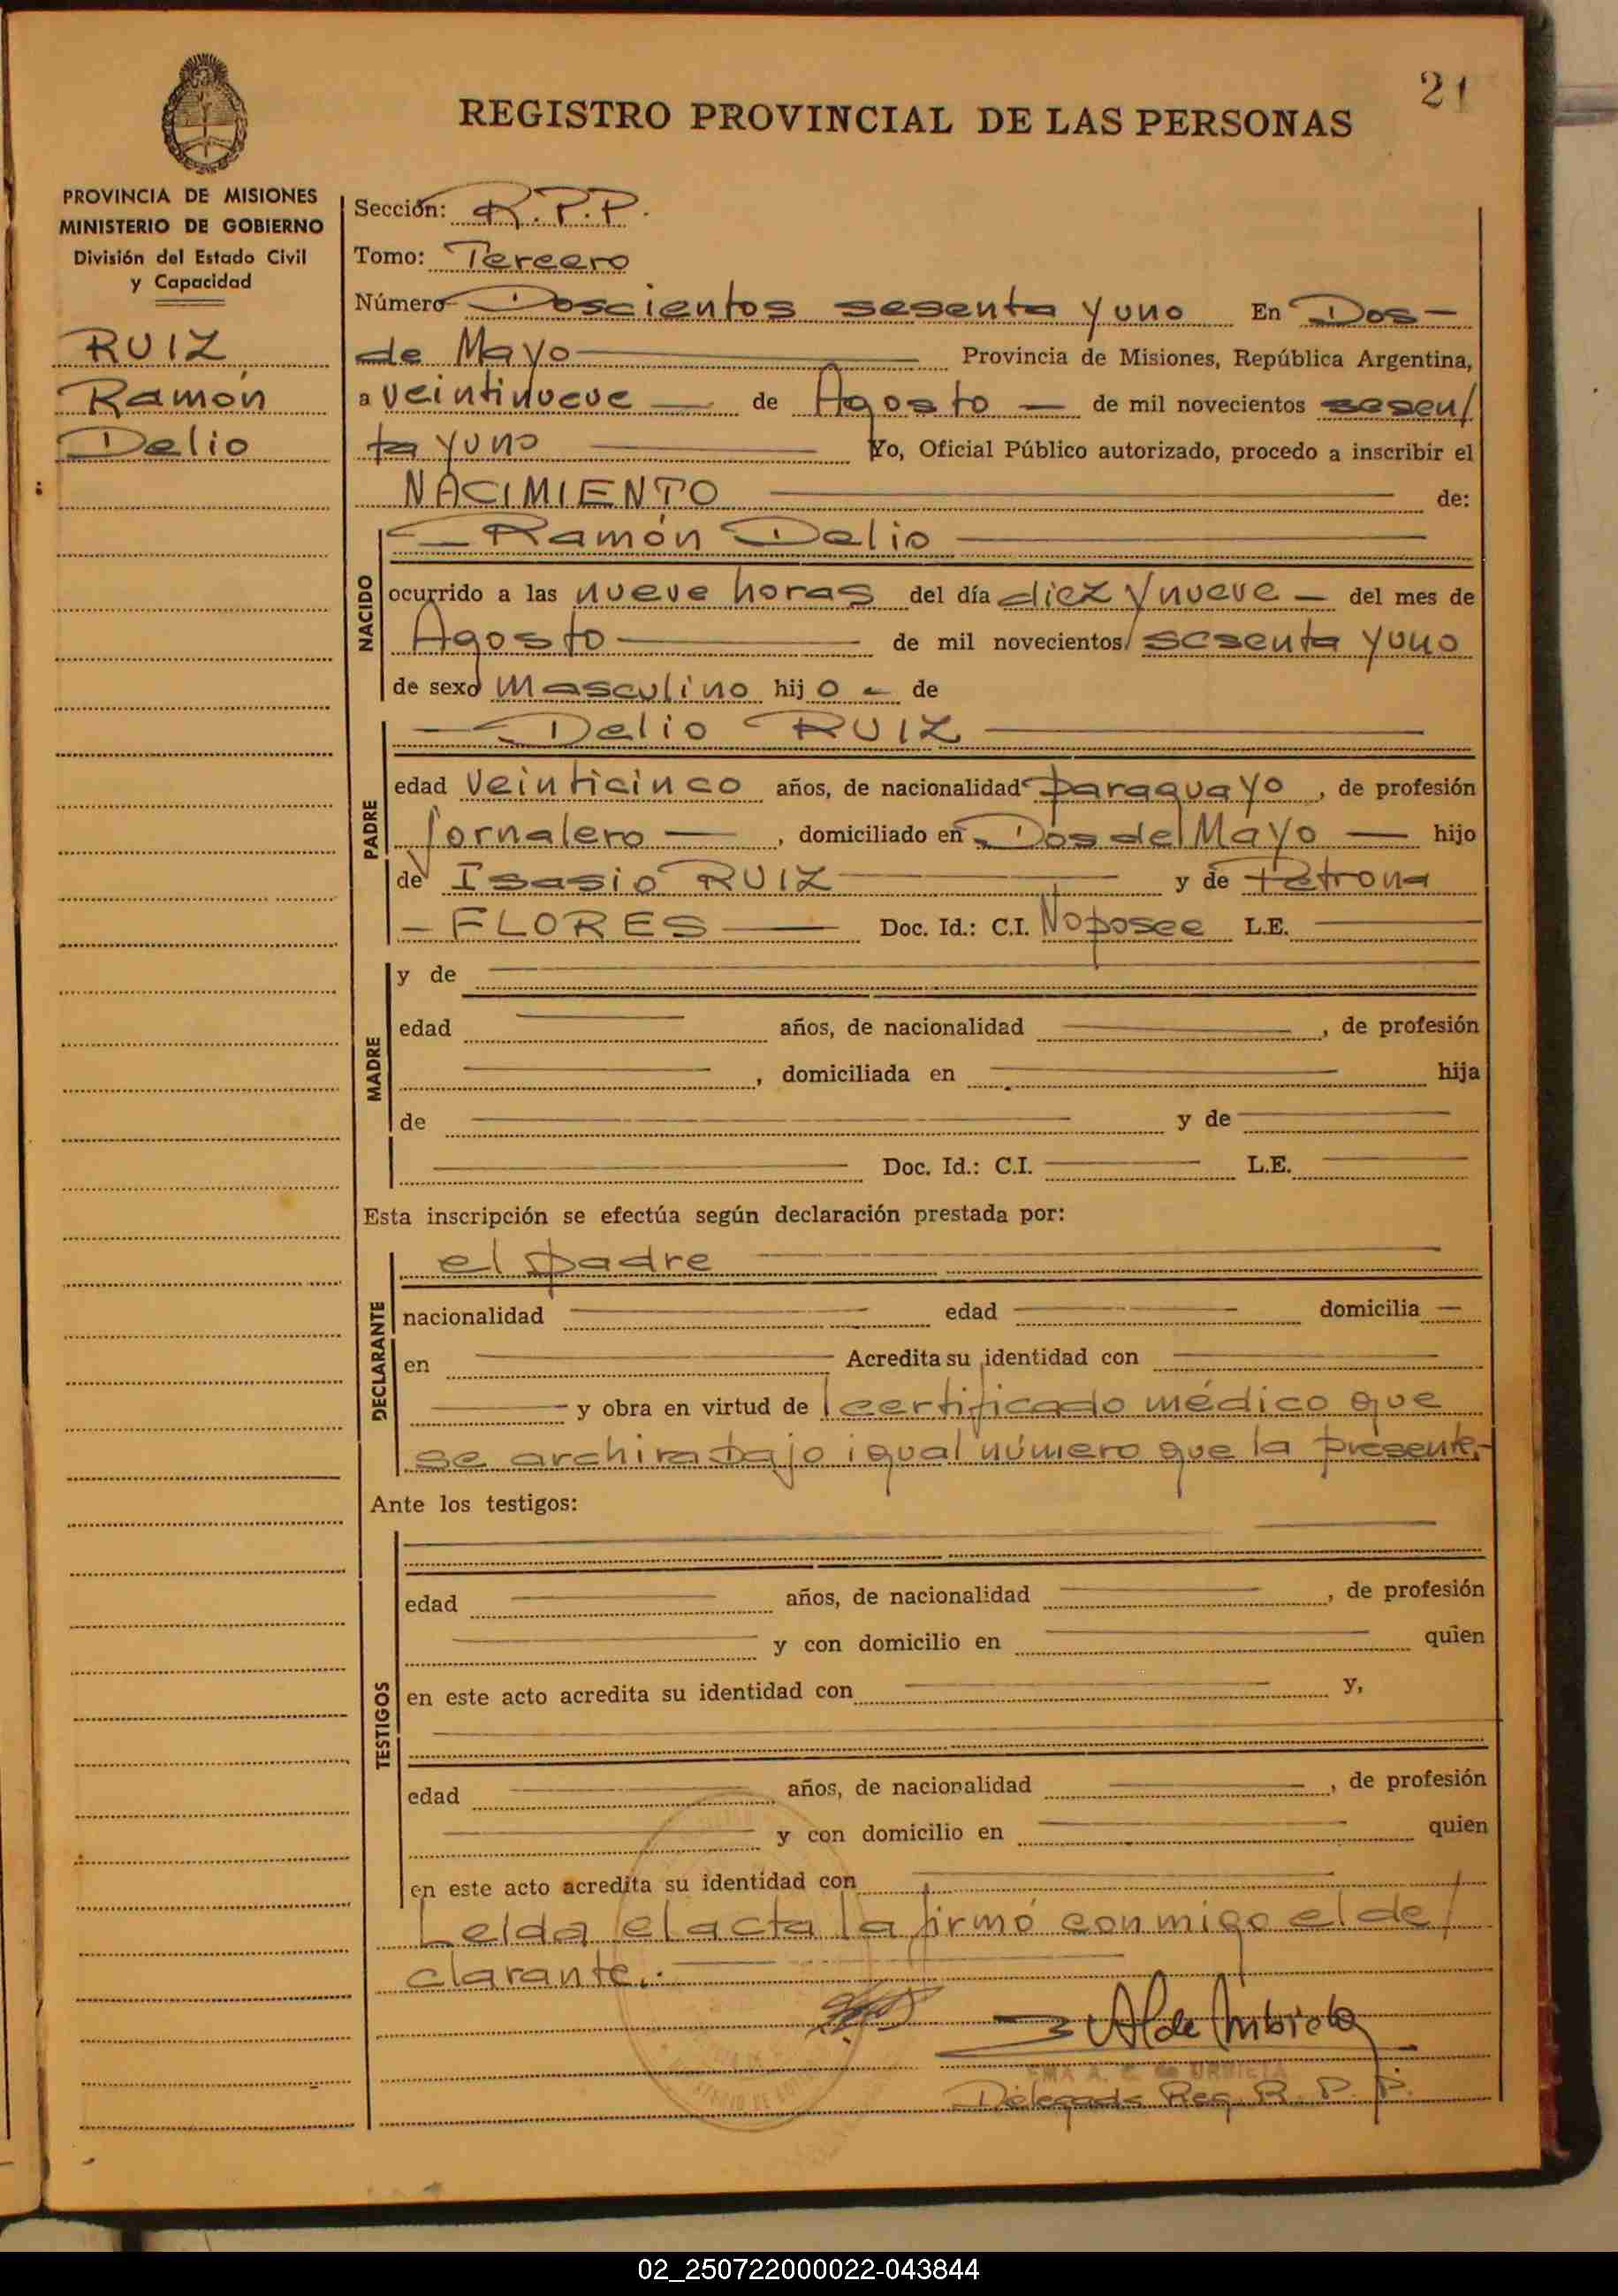 21
REGISTRO PROVINCIAL DE LAS PERSONAS
PROVINCIA DE MISIONES
MINISTERIO DE GOBIERNO
División del Estado Civil
y Capacidad
RUIZ
Ramón
Delio
Sección: R.P.P.
Tomo: Tercero
Número Doscientos sesenta y uno En Dos
de Mayo Provincia de Misiones, República Argentina,
a veintinueve de Agosto de mil novecientos sesen/
ta y uno Yo, Oficial Público autorizado, procedo a inscribir el
NACIMIENTO de:
Ramón Delio
NACIDO
ocurrido a las nueve horas del día diez y nueve del mes de
Agosto de mil novecientos/ sesenta y uno
de sexo masculino hijo de
Delio RUIZ
PADRE
edad veinticinco años, de nacionalidad paraguayo, de profesión
jornalero, domiciliado en Dos de Mayo hijo
de Isasio RUIZ y de Petrona
FLORES Doc. Id.: C.I. No posee L.E.
MADRE
y de
edad años, de nacionalidad , de profesión
, domiciliada en hija
de y de
Doc. Id.: C.I. L.E.
Esta inscripción se efectúa según declaración prestada por:
DECLARANTE
el padre
nacionalidad edad domicilia
en Acredita su identidad con
y obra en virtud de l certificado médico que
se archiva bajo igual número que la presente.
Ante los testigos:
TESTIGOS
edad años, de nacionalidad , de profesión
y con domicilio en quien
en este acto acredita su identidad con y,
edad años, de nacionalidad , de profesión
y con domicilio en quien
en este acto acredita su identidad con
Leida el acta la firmó conmigo el de/
clarante.
Delegada Reg. R. P. P.
02_250722000022-043844